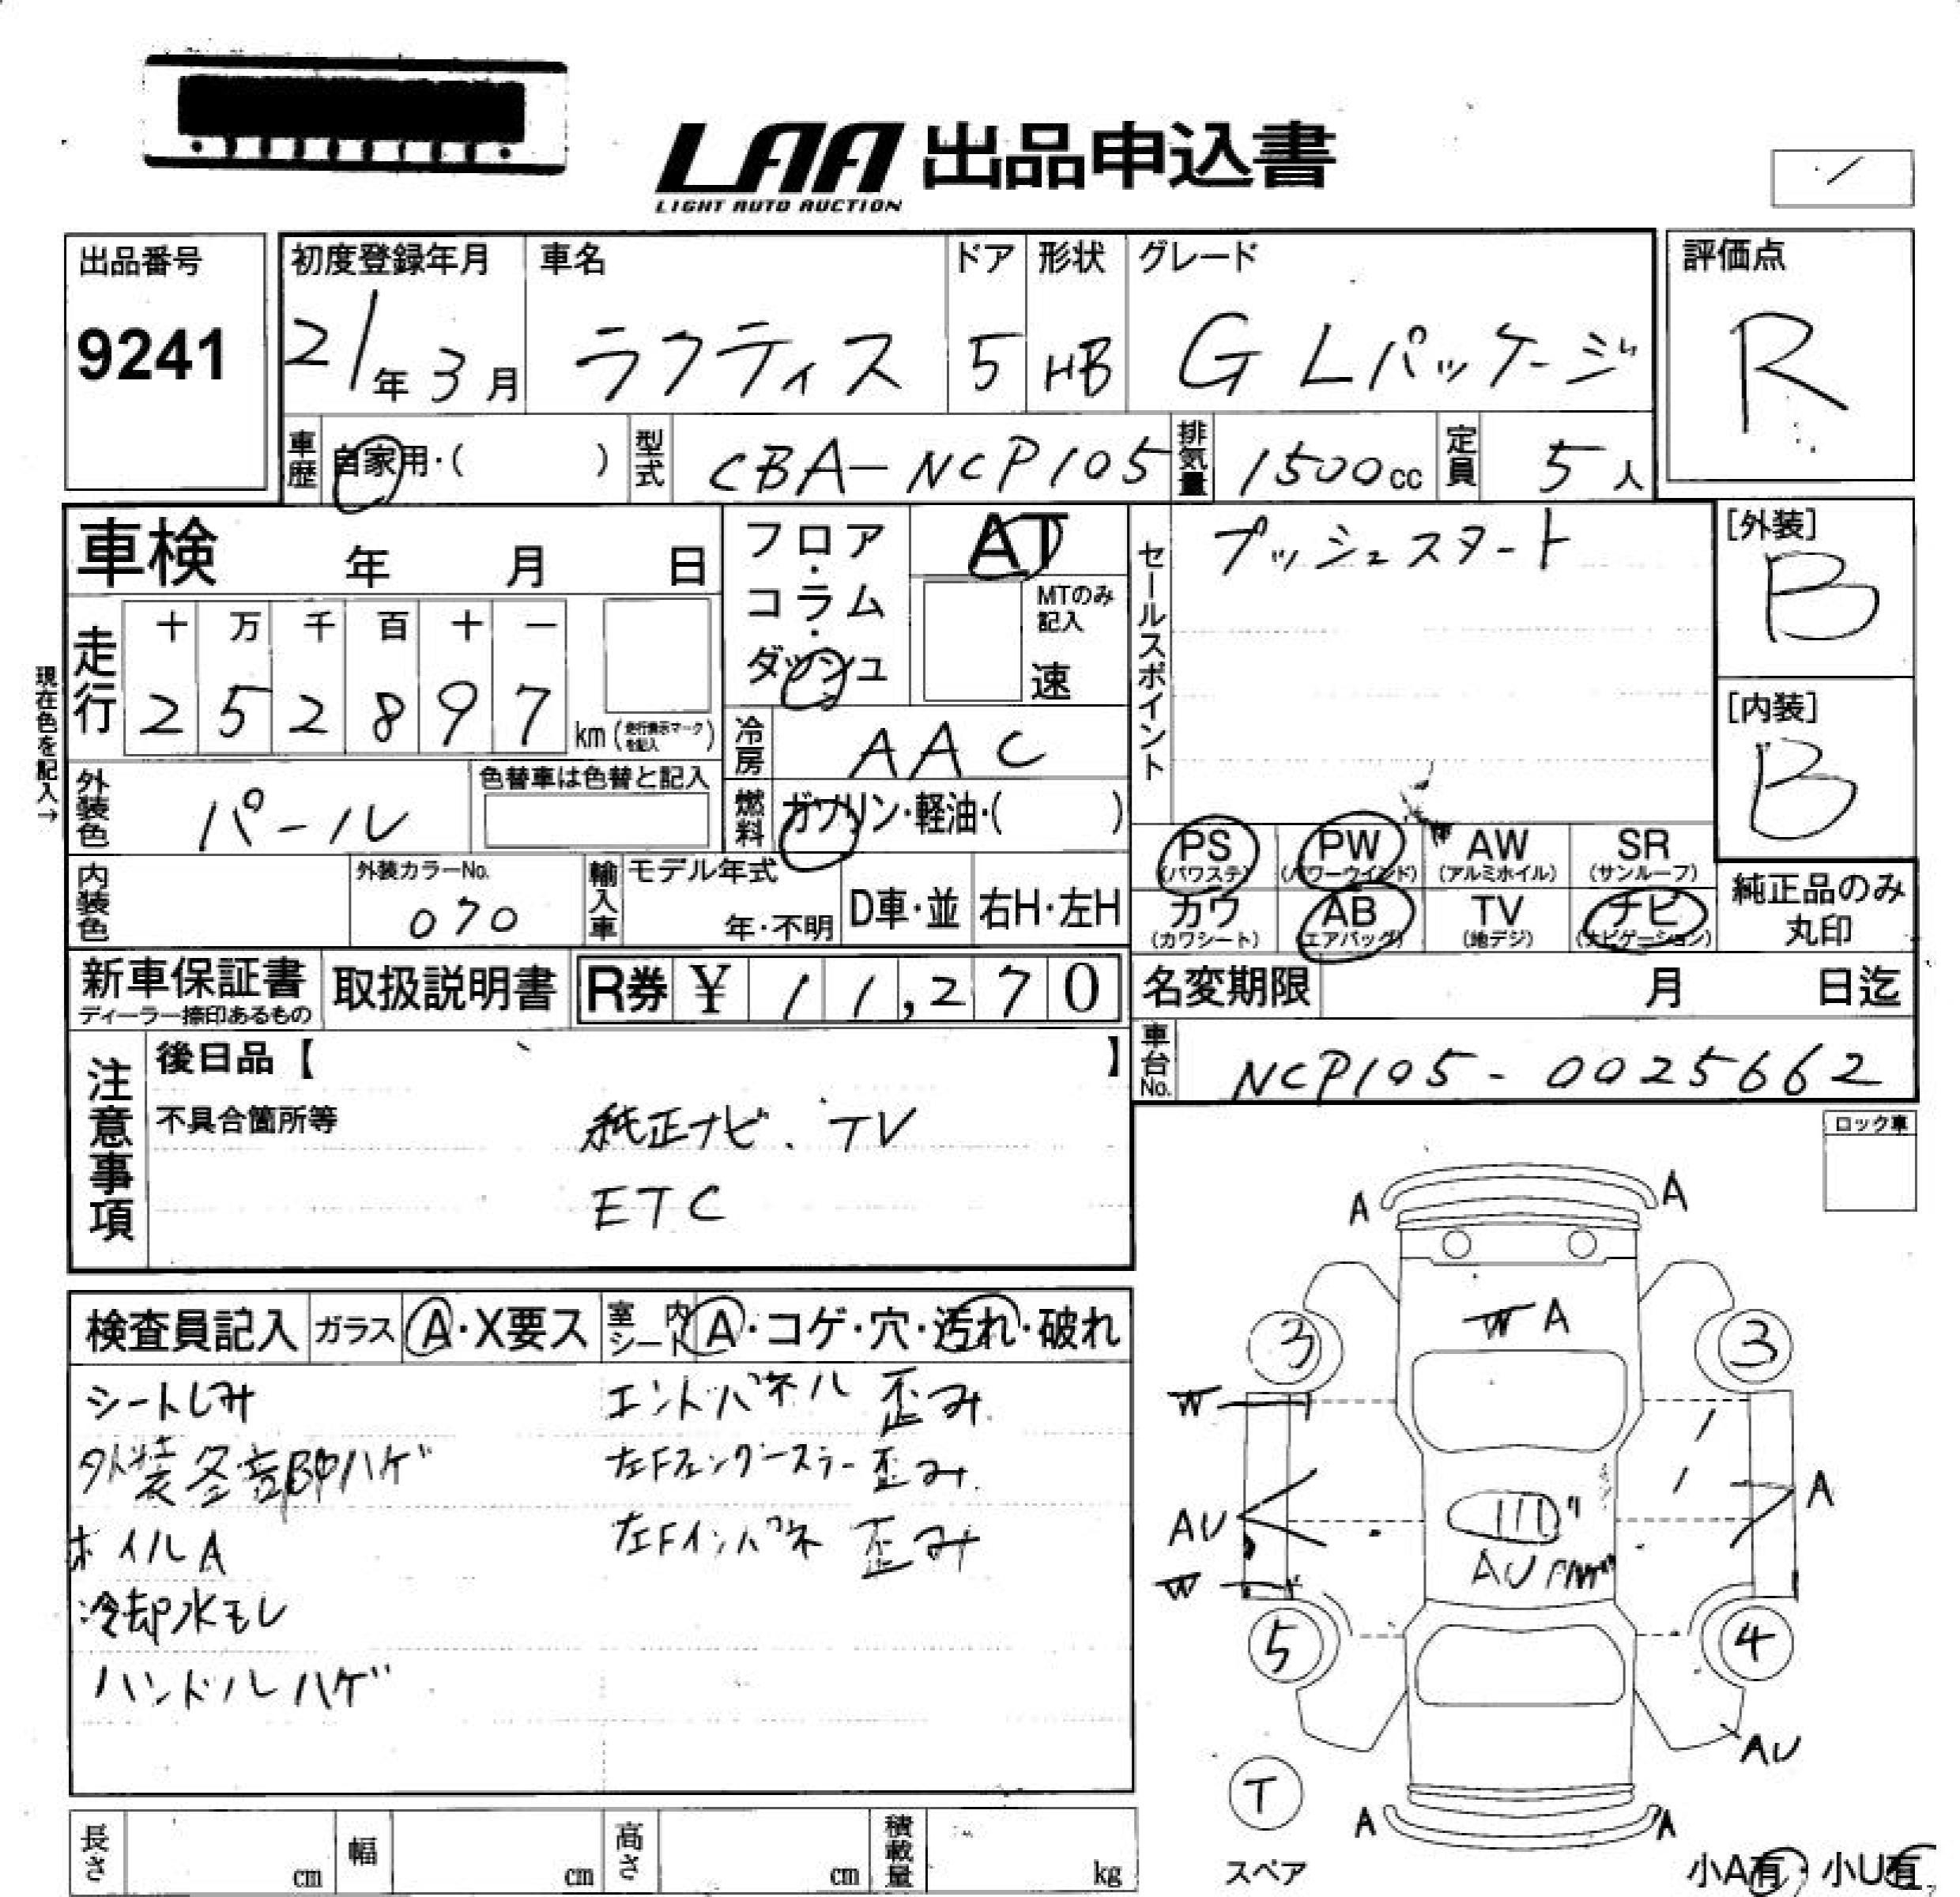 LAA 出品申込書
LIGHT AUTO AUCTION
出品番号
9241
初度登録年月
21年3月
車名
ラクティス
ドア
5
形状
HB
グレード
G Lパッケージ
評価点
R
車歴 自家用・( )
型式 CBA-NCP105
排気量 1500cc
定員 5人
車検 年 月 日
フロア・コラム・ダッシュ
AT
MTのみ記入
速
セールスポイント
プッシュスタート
[外装]
B
[内装]
B
現在色を記入→
走行
十 万 千 百 十 一
2 5 2 8 9 7 km (走行表示マークを記入)
冷房 AAC
外装色 パール
色替車は色替と記入
燃料 ガソリン・軽油・( )
PS (パワステ)
PW (パワーウインド)
AW (アルミホイル)
SR (サンルーフ)
カワ (カワシート)
AB (エアバッグ)
TV (地デジ)
ナビ (ナビゲーション)
純正品のみ丸印
内装色
外装カラーNo.
070
輸入車
モデル年式
年・不明
D車・並
右H・左H
新車保証書
ディーラー捺印あるもの
取扱説明書
R券 ¥ 11,270
名変期限 月 日迄
車台No. NCP105-0025662
注意事項
後日品【 】
不具合箇所等
純正ナビ、TV
ETC
ロック車
検査員記入
ガラス A・X要ス
室内シート A・コゲ・穴・汚れ・破れ
シートしみ
外装各部ハゲ
ホイルA
冷却水モレ
ハンドルハゲ
エンドパネル 歪み
左Fフェンダーステー 歪み
左Fインパネ 歪み
A A
W A
3 3
W
A
AU
AU
W
5 4
AU
T
スペア
A A
小A有 小U有
長さ cm
幅 cm
高さ cm
積載量 kg